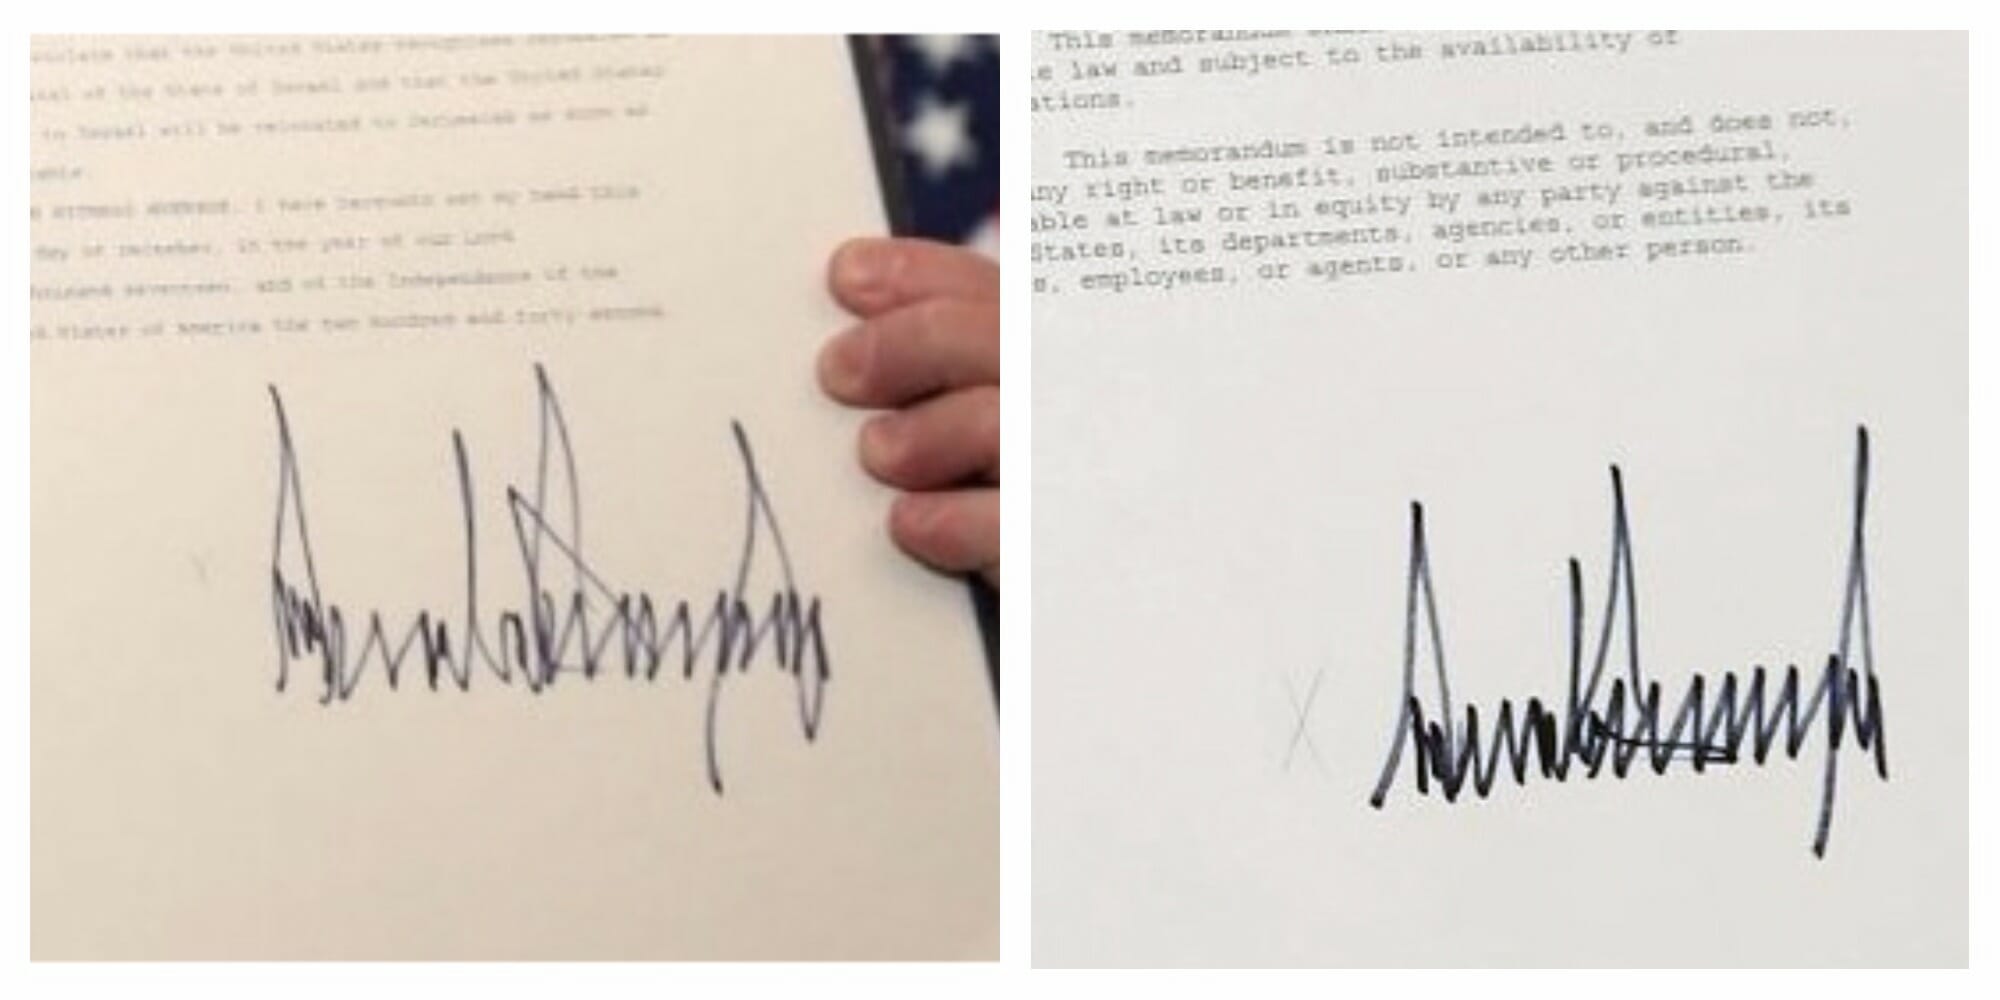 that the United States recognizes Jerusalem as
of the State of Israel and that the United States
in Israel will be relocated to Jerusalem as soon as
WITNESS WHEREOF, I have hereunto set my hand this
day of December, in the year of our Lord
thousand seventeen, and of the Independence of the
States of America the two hundred and forty-second.
This memorandum
e law and subject to the availability of
ations.
This memorandum is not intended to, and does not,
any right or benefit, substantive or procedural,
able at law or in equity by any party against the
States, its departments, agencies, or entities, its
s, employees, or agents, or any other person.
X